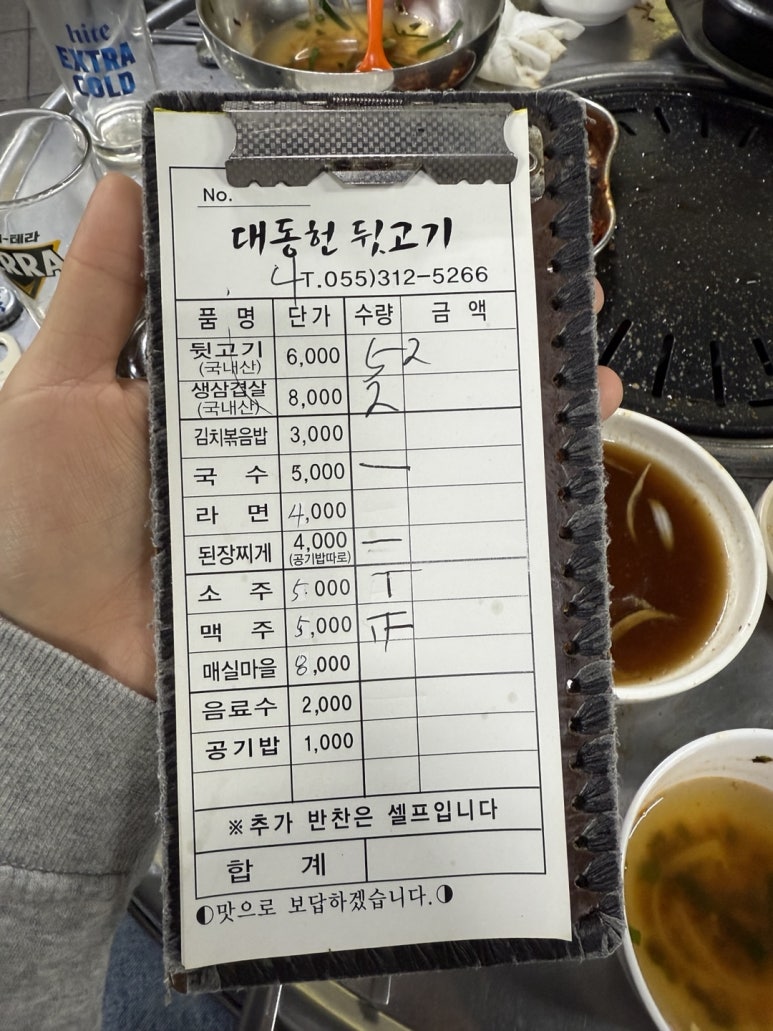 hite
EXTRA
COLD
테라
No.
대동헌 뒷고기
4
T.055)312-5266
품 명 단가 수량 금 액
뒷고기 6,000 5 2
(국내산)
생삼겹살 8,000 2
(국내산)
김치볶음밥 3,000
국 수 5,000 一
라 면 4,000
된장찌게 4,000 一
(공기밥따로)
소 주 5,000 T
맥 주 5,000 正
매실마을 8,000
음료수 2,000
공기밥 1,000
※추가 반찬은 셀프입니다
합 계
◐맛으로 보답하겠습니다.◑